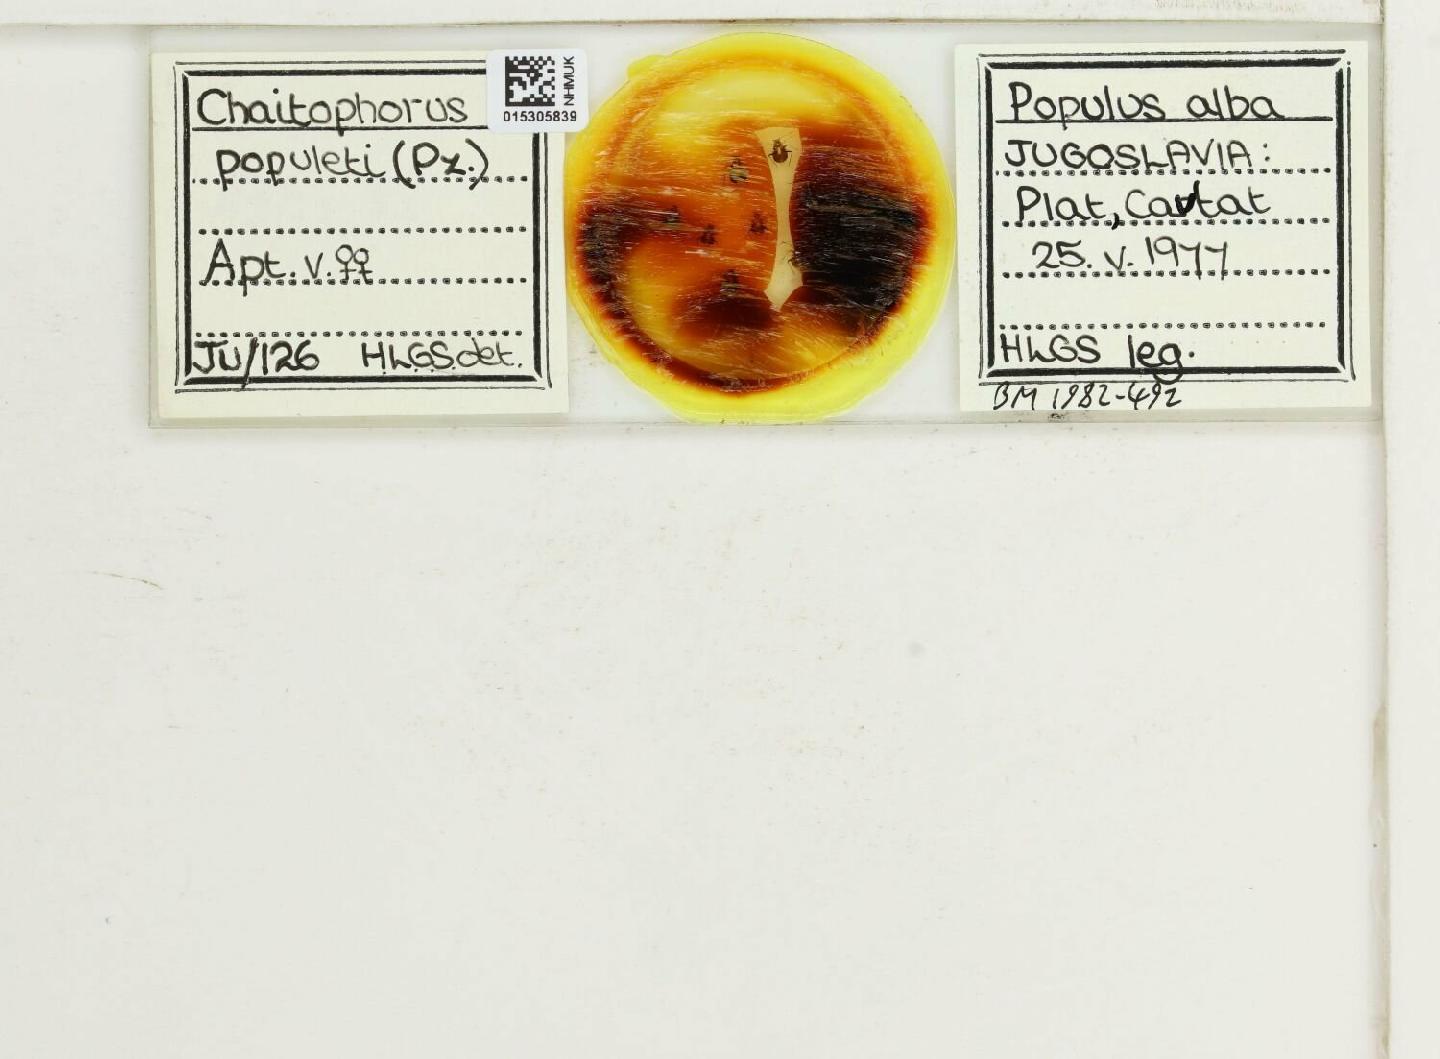 Chaitophorus
populeti (Pz.)
Apt. v. ♀♀
JU/126 H.L.G.S. det.
NHMUK
015305839
Populus alba
JUGOSLAVIA:
Plat, Cavtat
25. v. 1977
HLGS leg.
BM 1982-492